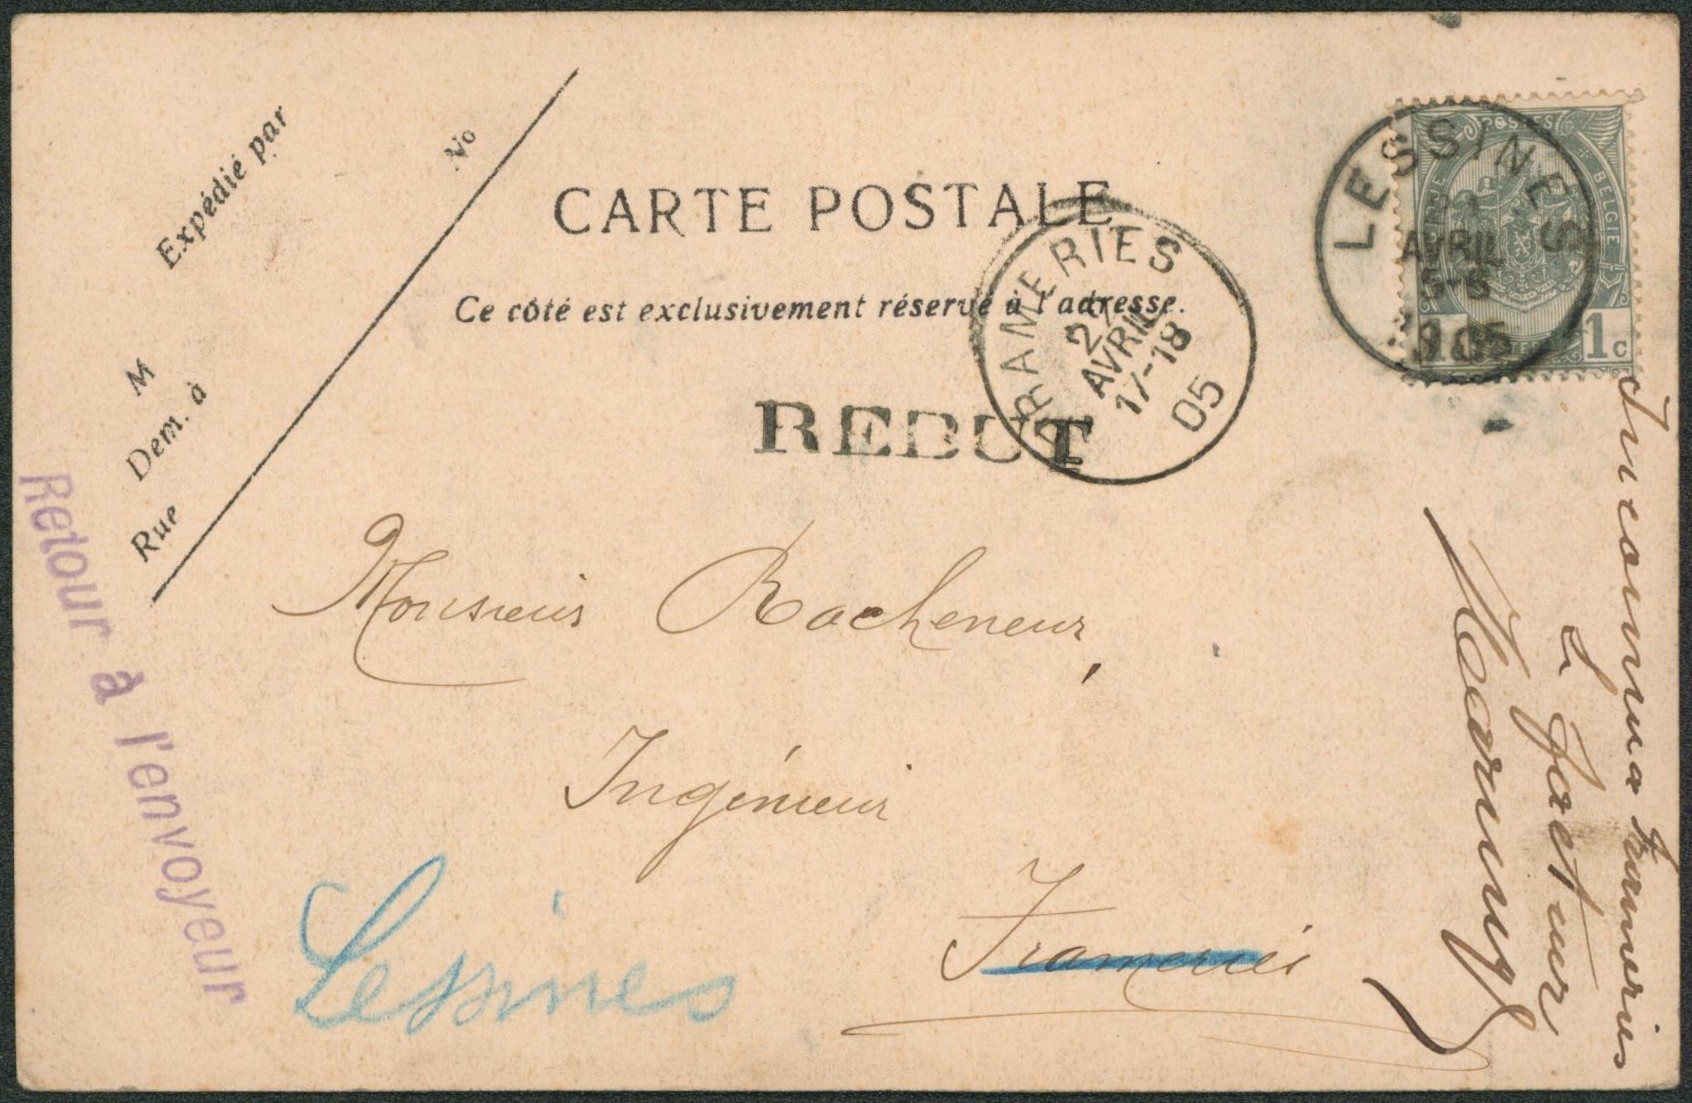 Expédié par
No
M
Dem. à
Rue
CARTE POSTALE
Ce côté est exclusivement réservé à l'adresse.
REBUT
FRAMERIES
AVRIL
17-18
05
LESSINES
AVRIL
1905
POSTES
BELGIE
1 c
Retour à l'envoyeur
Monsieur Racheneur,
Ingénieur
Frameries
Lessines
Inconnu a Frameries
Le facteur